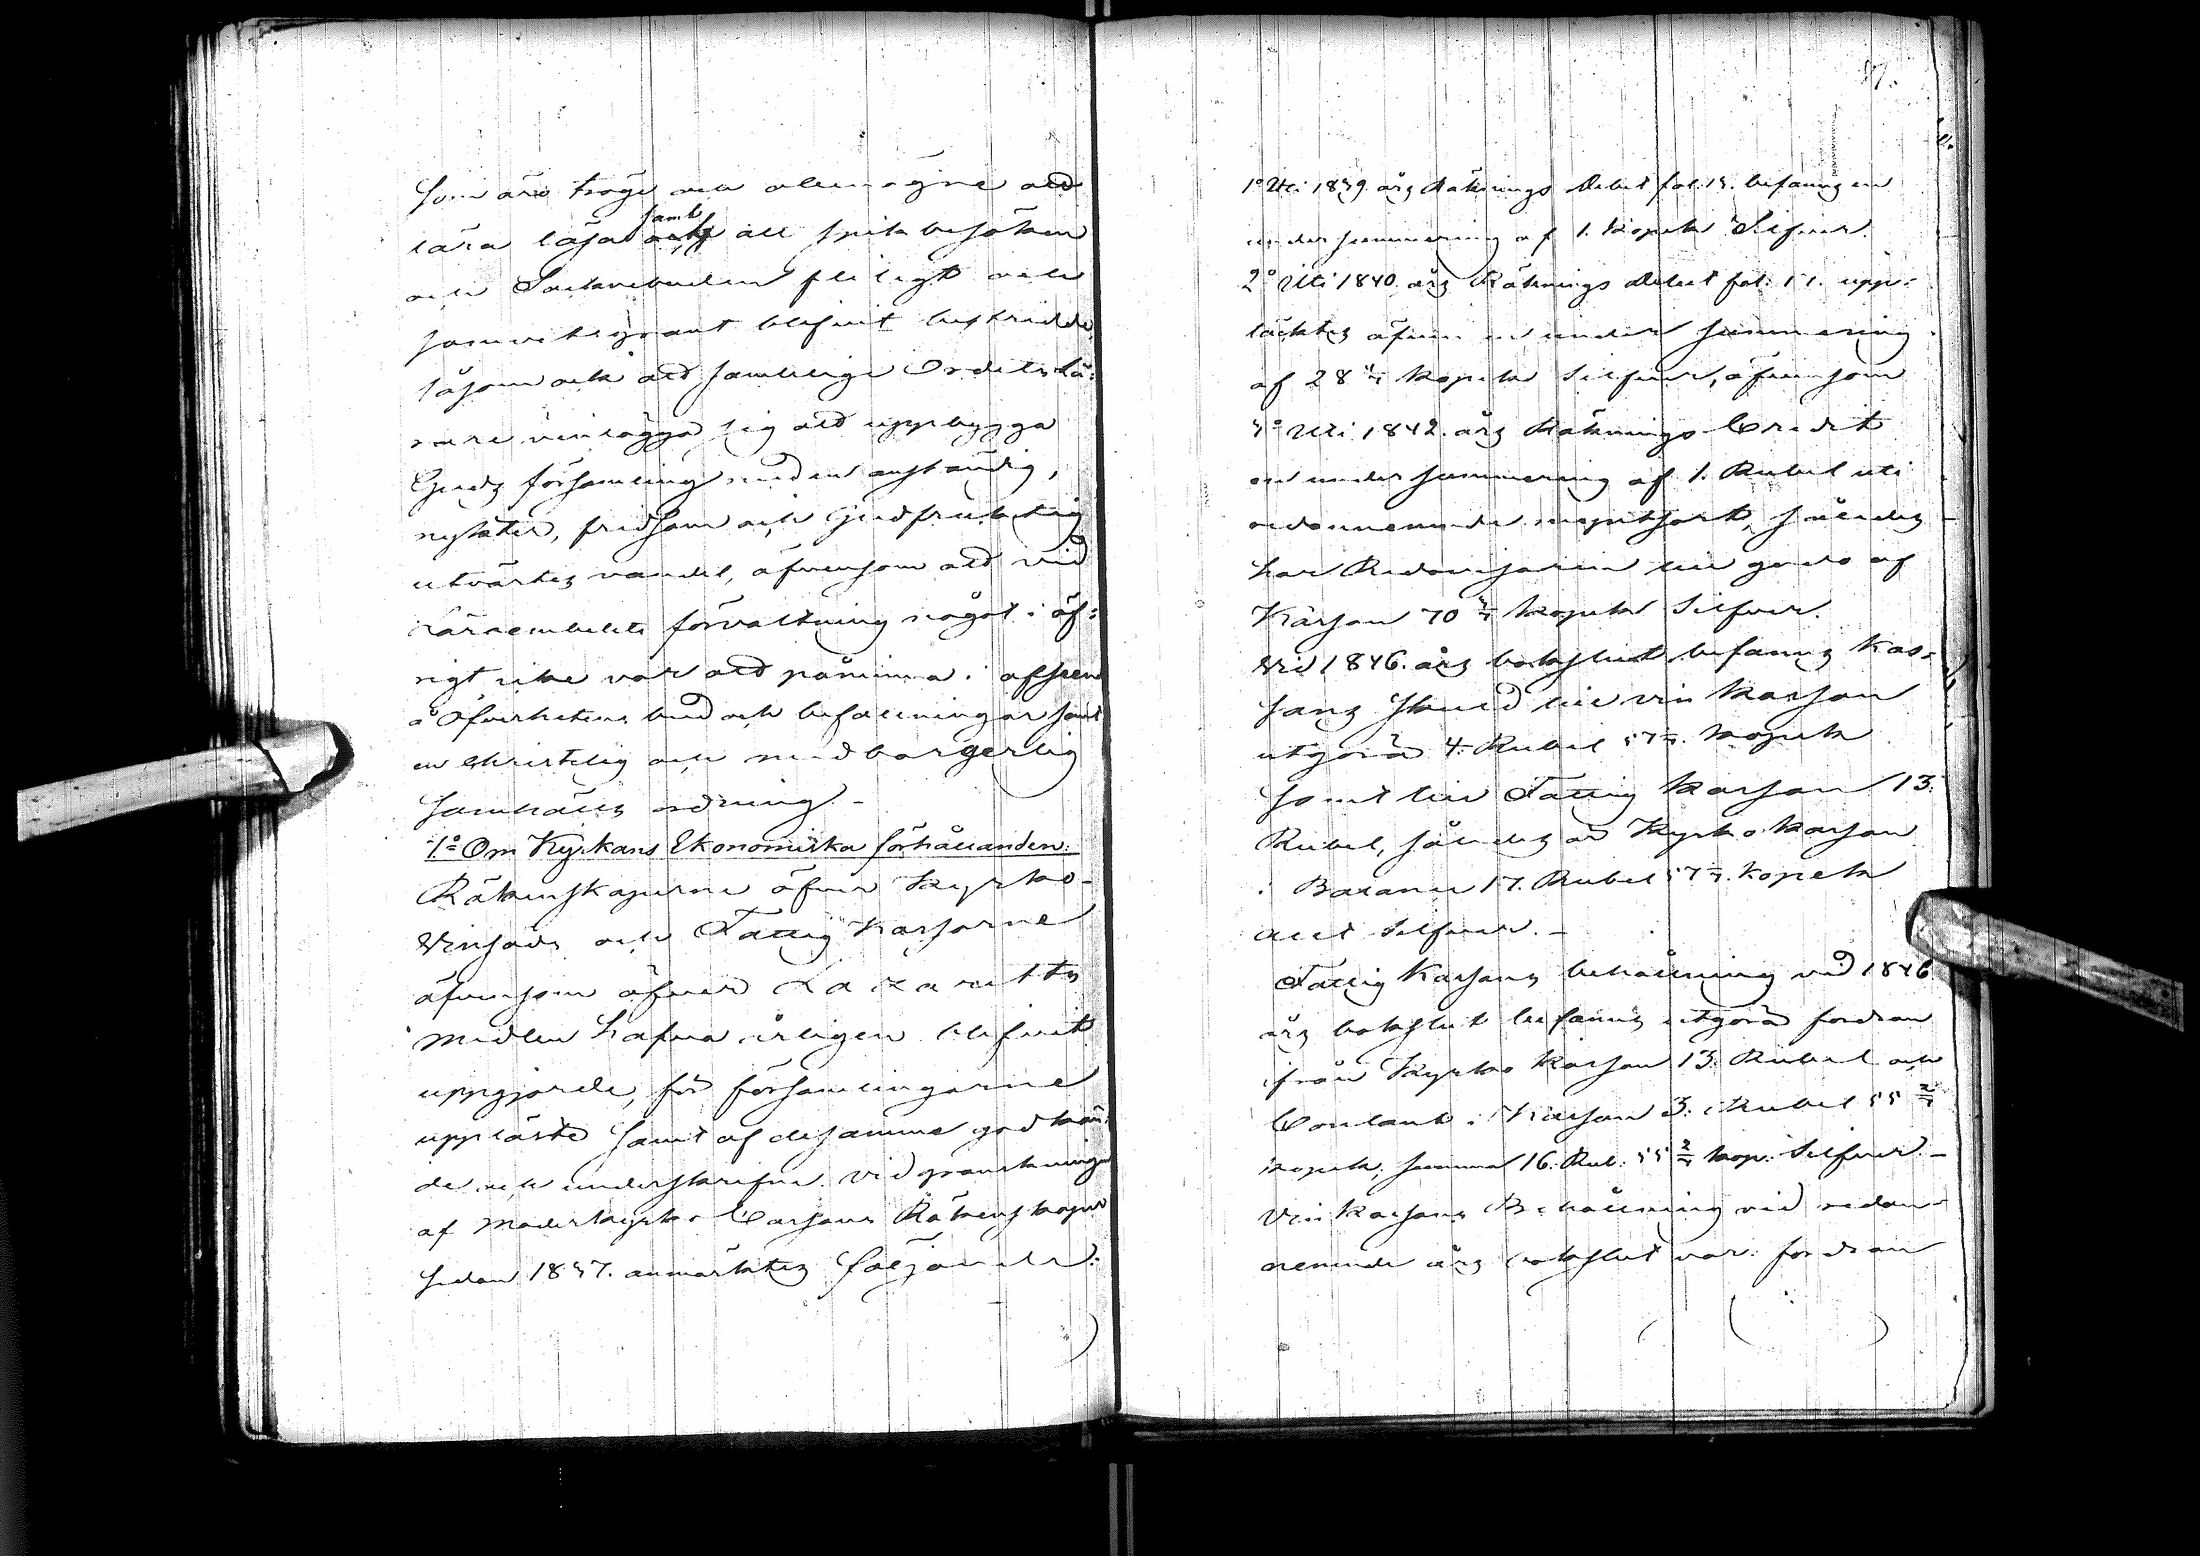 som äro tröge och olemägne att
lära läsa samt att sjukbesöken
och Sockenbuden fliligt och
samvetsgrant blifvit bestridde,
såsom ock att samtelige Ordets lä-
rare vinlägga sig att uppbygga
Guds församling med en anständig,
nyktер, fridsam och Gudfrucktig
utvärtes vandel, äfvensom att vid
Läroembetets förvaltning något i öf-
rigt icke var att påminna i afseende
å Öfverhetens bud och befallningar samt
en Christelig och medborgerlig
Samhälls ordning.-
7:º Om Kyrkans Ekonomiska förhållanden.
Räkenskaperne öfver Kyrko-
Vinsäds och Fattig Kassorne
äfvensom öfver Lazaretts
midlen hafva årligen blifvit
uppgjorde, för församlingarne
uppläste samt af desamma godkän-
de och underskrifne. Vid granskningen
af Moderkyrko Cassans Räkenskaper
sedan 1837. anmärktes följande:
1º Uti 1839. års Räknings Debet fol. 15. befanns en
undersummering af 1. Kopek Silfver.
2º Uti 1840. års Räknings Debet fol: 51. upp-
täcktes äfven en under summering
af 28 4/7 kopek Silfver, äfvensom
3º Uti 1842. års Räknings Credit
en undersummering af 1. Rubel uti
ordannemnde myntsort, således
har Redovisaren till godo af
Kassan 70 3/7 kopek Silfver.
Vid 1846. års bokslut befanns Kas-
sans skuld till vin Kassan
utgöra 4. Rubel 57 1/7. kopek
samt till Fattig Kassan 13.
Rubel, således är Kyrko Kassan
i Balance 17. Rubel 57 1/7. kopek
allt Silfver.-
Fattig Kassans behållning vid 1846
års bokslut befanns utgöra fordran
ifrån Kyrko Kassan 13. Rubel och
Contant i Kassan 3. Rubel 55 2/7
kopek, summa 16. Rub: 55 2/7 kop. Silfver.-
Vin Kassans Behållning vid redan-
nemnde års bokslut var: fordran